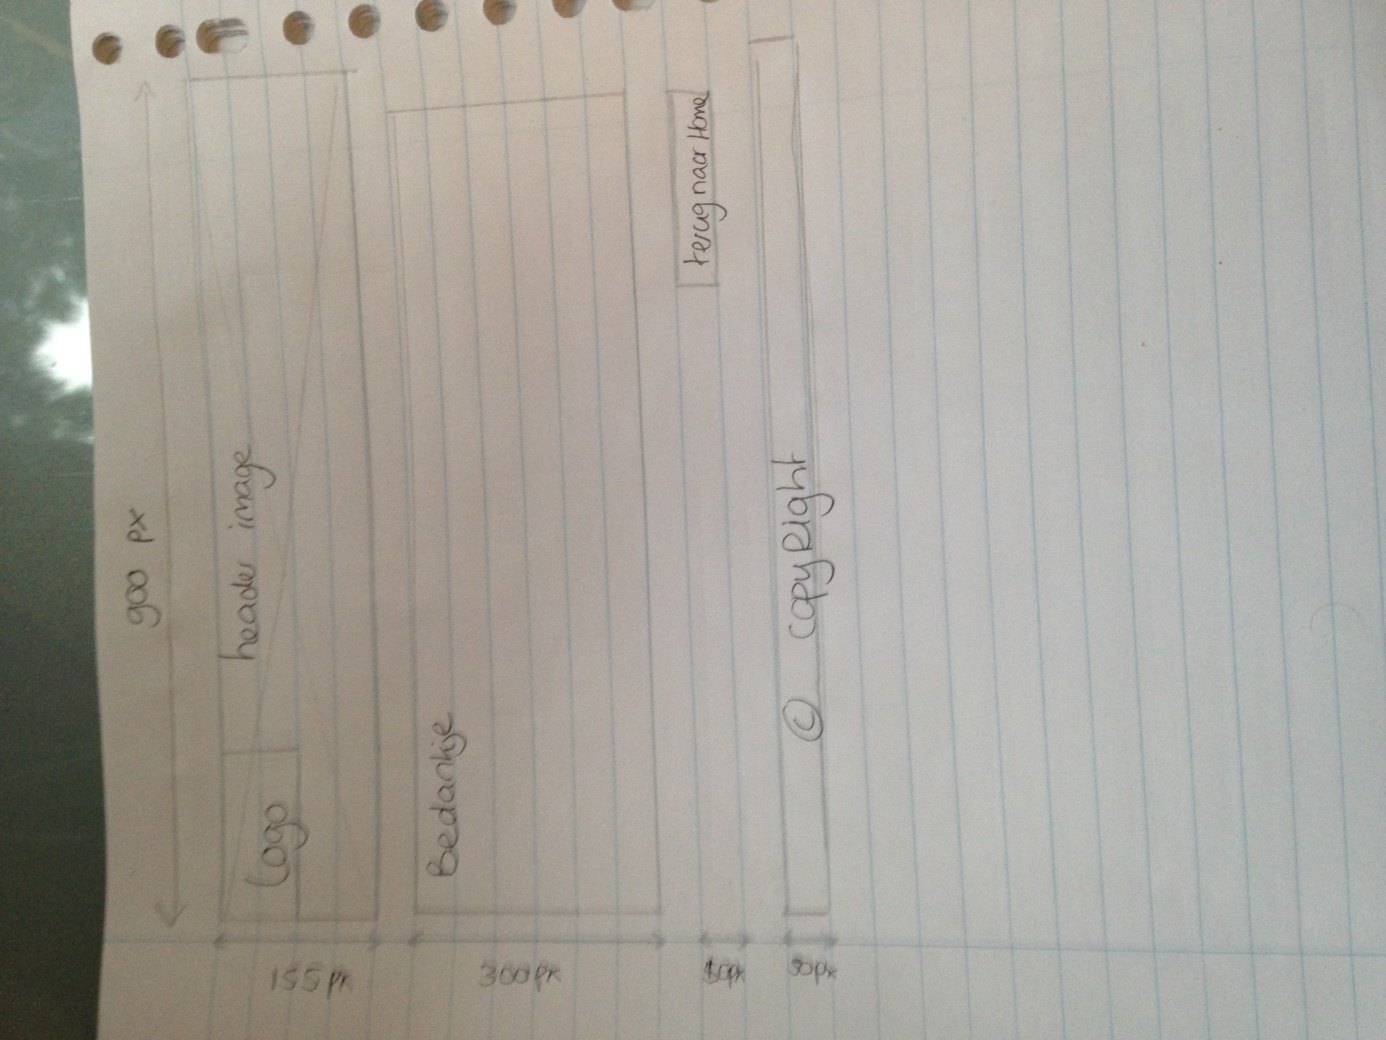 900 px
header image
Logo
155px
Bedankje
300px
terug naar Home
50px
© copyRight